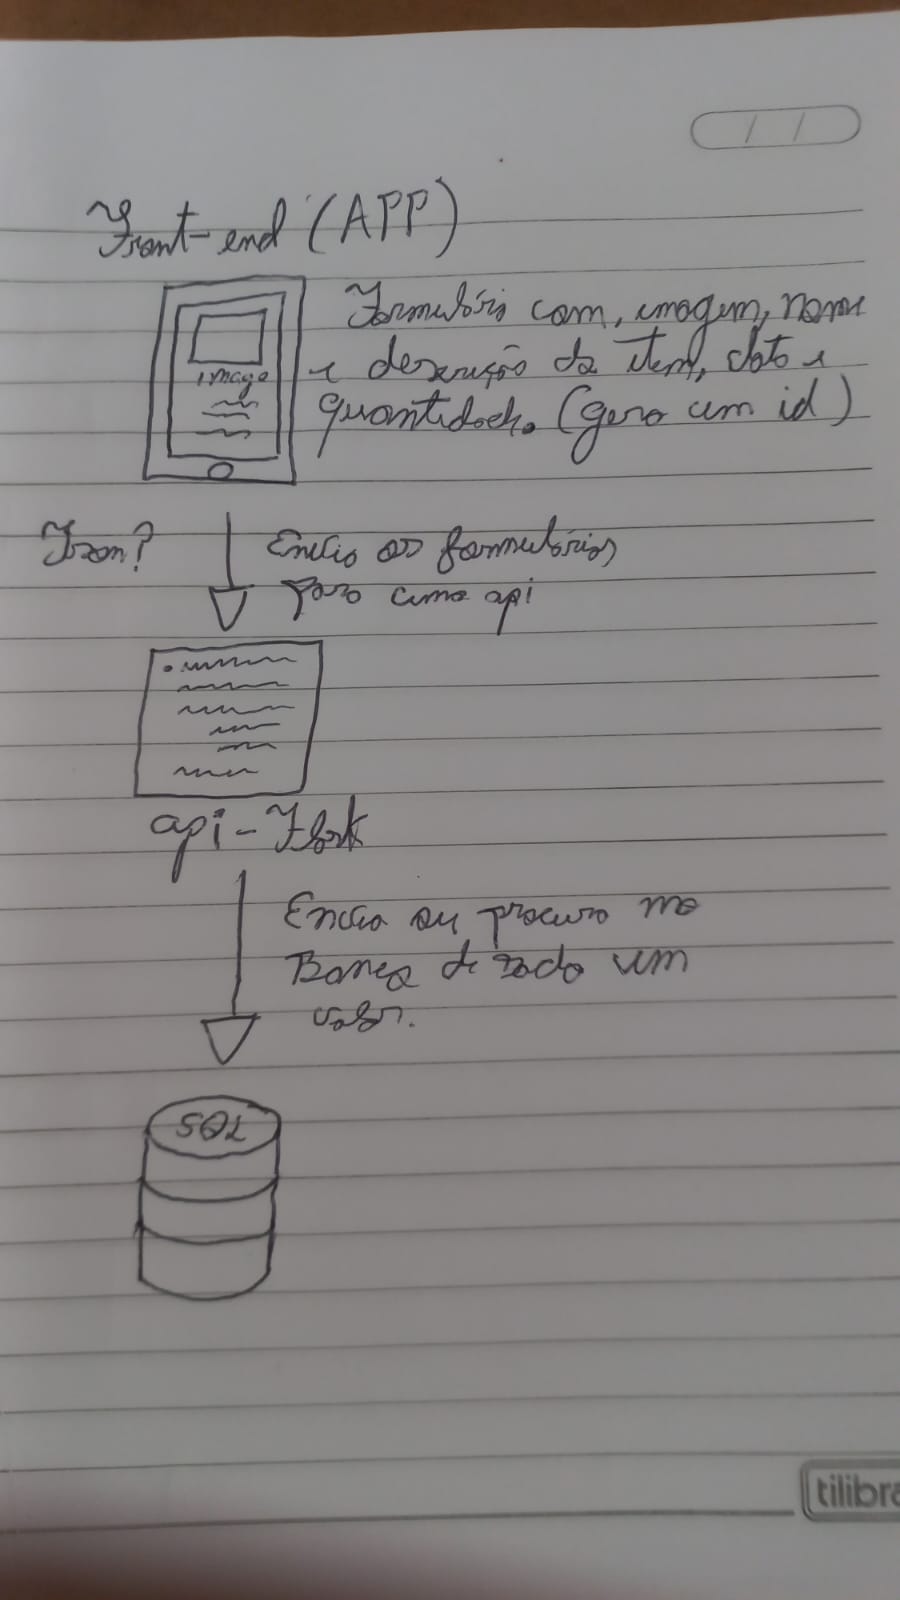 Front-end (APP)
Formulário com, imagem, nome
e descrição do item, data e
quantidade. (gera um id)
image
Json?
Envia os formulários
para uma api
api-Flask
Envia ou procura no
Banco de dado um
valor.
SQL
tilibra